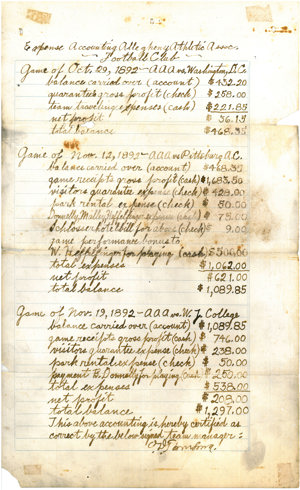 Expense Accounting Allegheny Athletic Assoc.
Football Club
Game of Oct. 29, 1892 - AAA vs. Washington, D.C.
balance carried over (account) $432.20
guarantee gross profit (check) $258.00
team traveling expenses (cash) $221.85
net profit $36.15
total balance $468.35
Game of Nov. 12, 1892 - AAA vs Pittsburg A.C.
balance carried over (account) $468.35
game receipts gross profit (cash) $1,683.50
visitors guarantee expense (check) $428.00
park rental expense (check) $50.00
Donnelly, Malley, Heffelfinger expenses (cash) $75.00
Schlosser hotel bill for above (check) $9.00
game performance bonus to
W. Heffelfinger for playing (cash) $500.00
total expenses $1,062.00
net profit $621.00
total balance $1,089.85
Game of Nov. 19, 1892 - AAA vs. W. J. College
balance carried over (account) $1,089.85
game receipts gross profit (cash) $746.00
visitors guarantee expense (check) $238.00
park rental expense (check) $50.00
payment B. Donnelly for playing (cash) $250.00
total expenses $538.00
net profit $208.00
total balance $1,297.00
This above accounting is hereby certified as
correct by the below signed team manager: